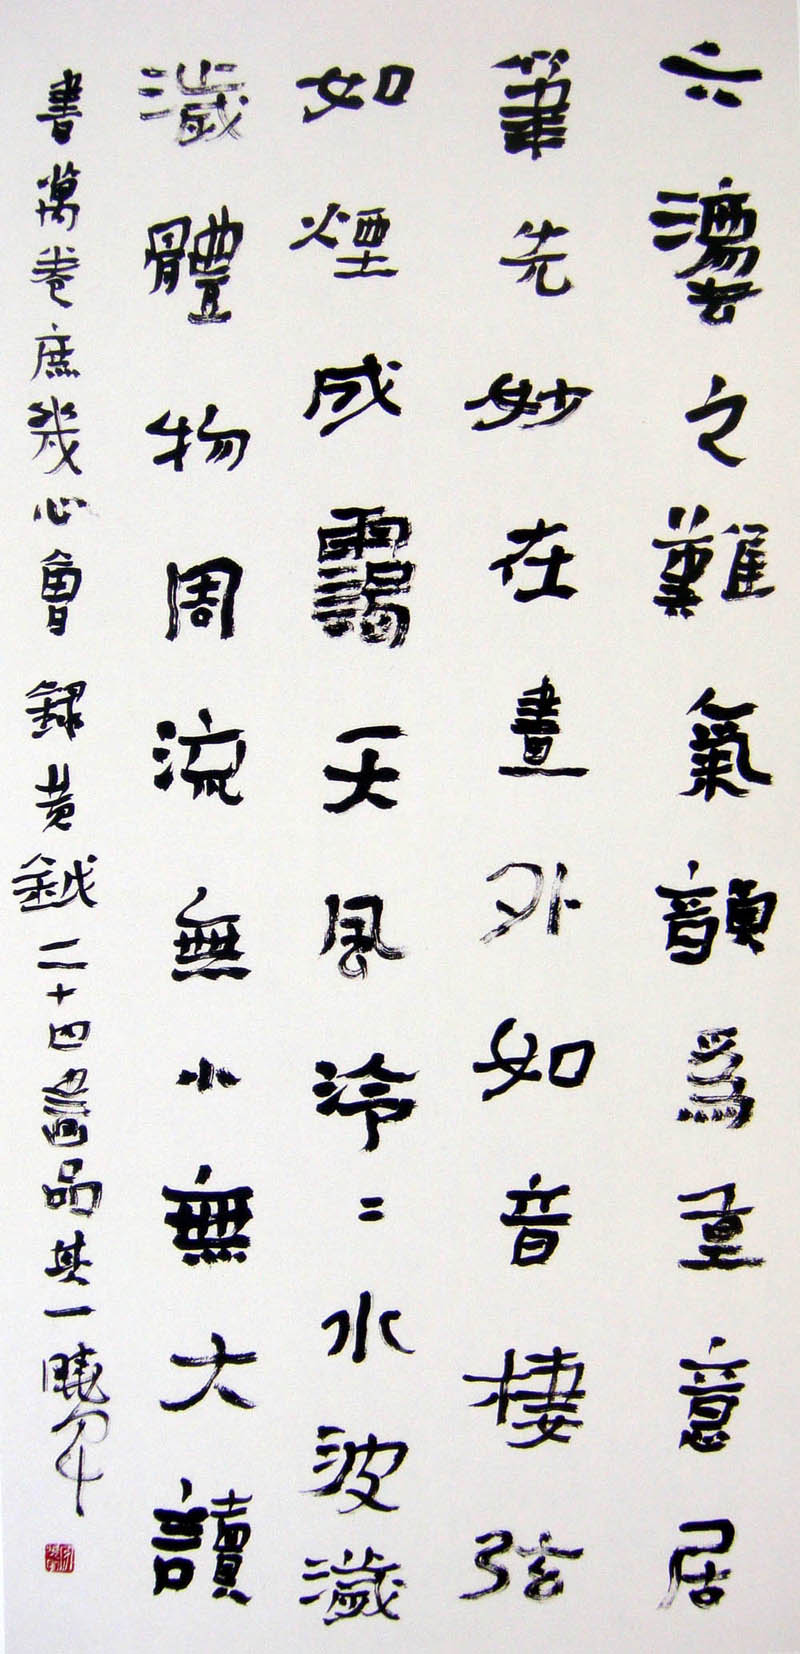 六灋之難氣韻爲重意居
筆先妙在畫外如音棲弦
如煙成靄天風泠〻水波濊
濊體物周流無小無大讀
書萬卷庶幾心會 錄黃鉞二十四畫品其一 曉軍